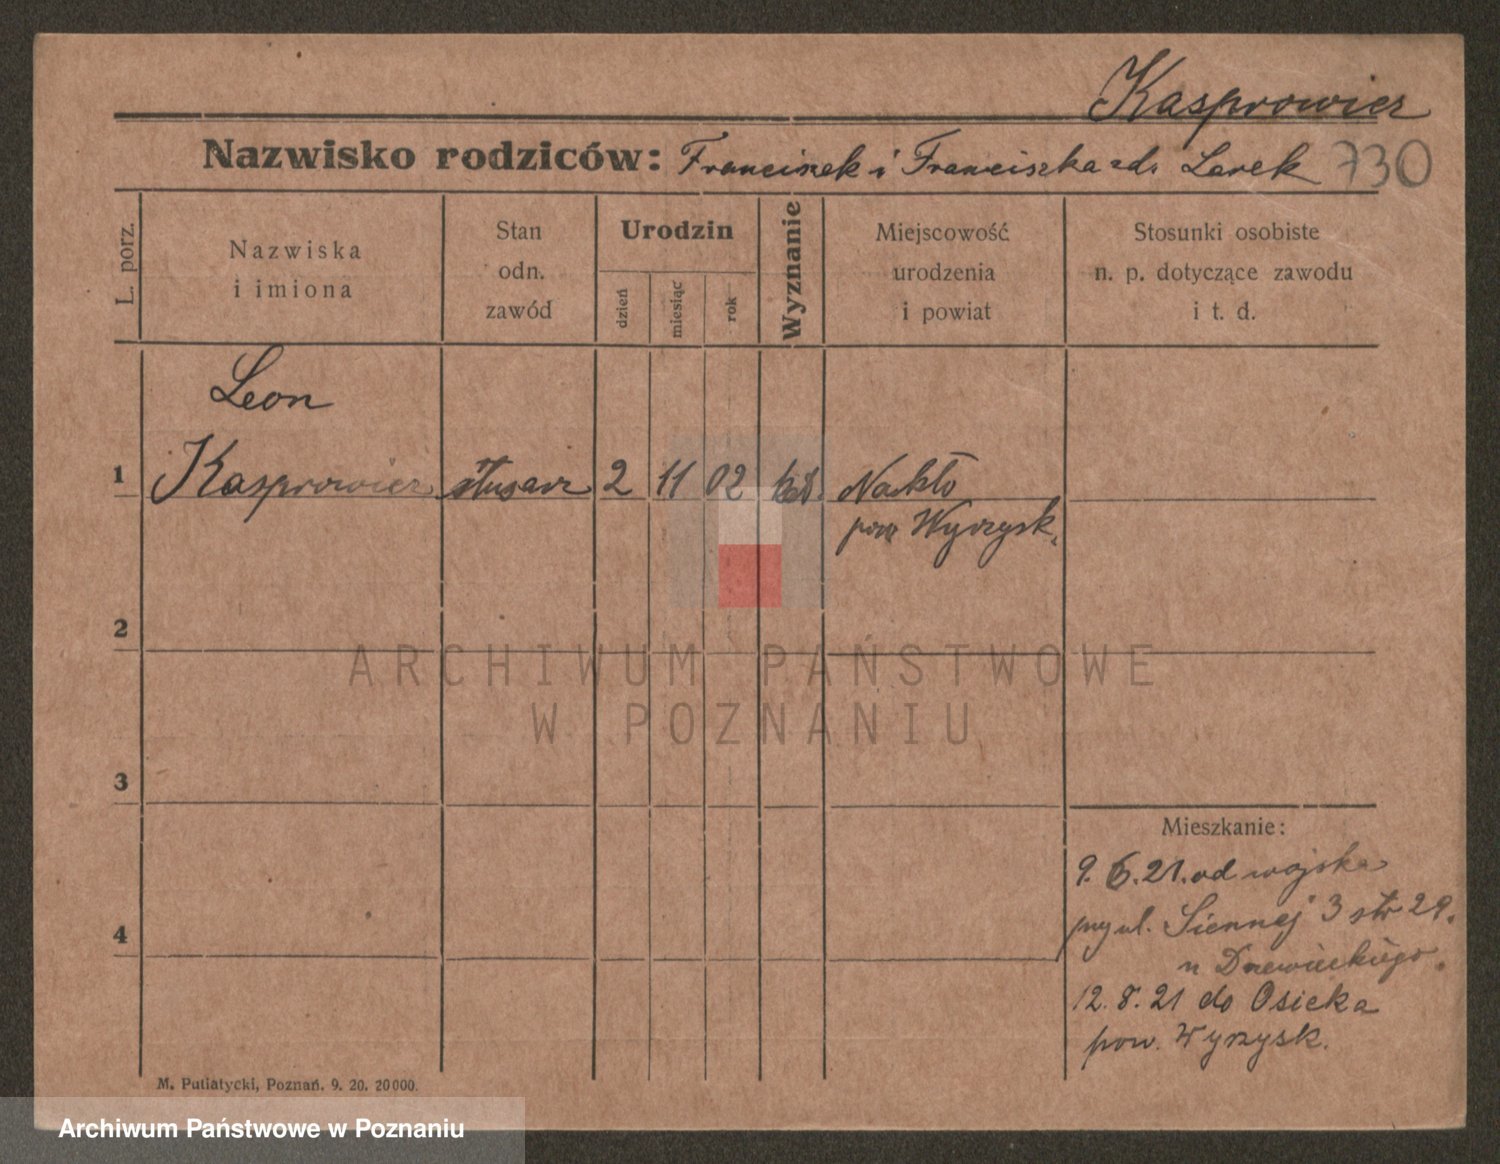 Kasprowicz
Nazwisko rodziców: Franciszek i Franciszka zd. Lorek 730
L. porz.
Nazwiska
i imiona
Stan
odn.
zawód
Urodzin
dzień
miesiąc
rok
Wyznanie
Miejscowość
urodzenia
i powiat
Stosunki osobiste
n. p. dotyczące zawodu
i t. d.
Leon
1 Kasprowicz ślusarz 2 11 02 kat. Nakło
pow Wyrzysk.
2
ARCHIWUM PAŃSTWOWE
W POZNANIU
3
Mieszkanie:
9. 6. 21. od wojska
przy ul. Siennej 3 str 29.
4
u Drzewieckiego.
12. 8. 21 do Osieka
pow. Wyrzysk.
M. Putiatycki, Poznań. 9. 20. 20000.
Archiwum Państwowe w Poznaniu